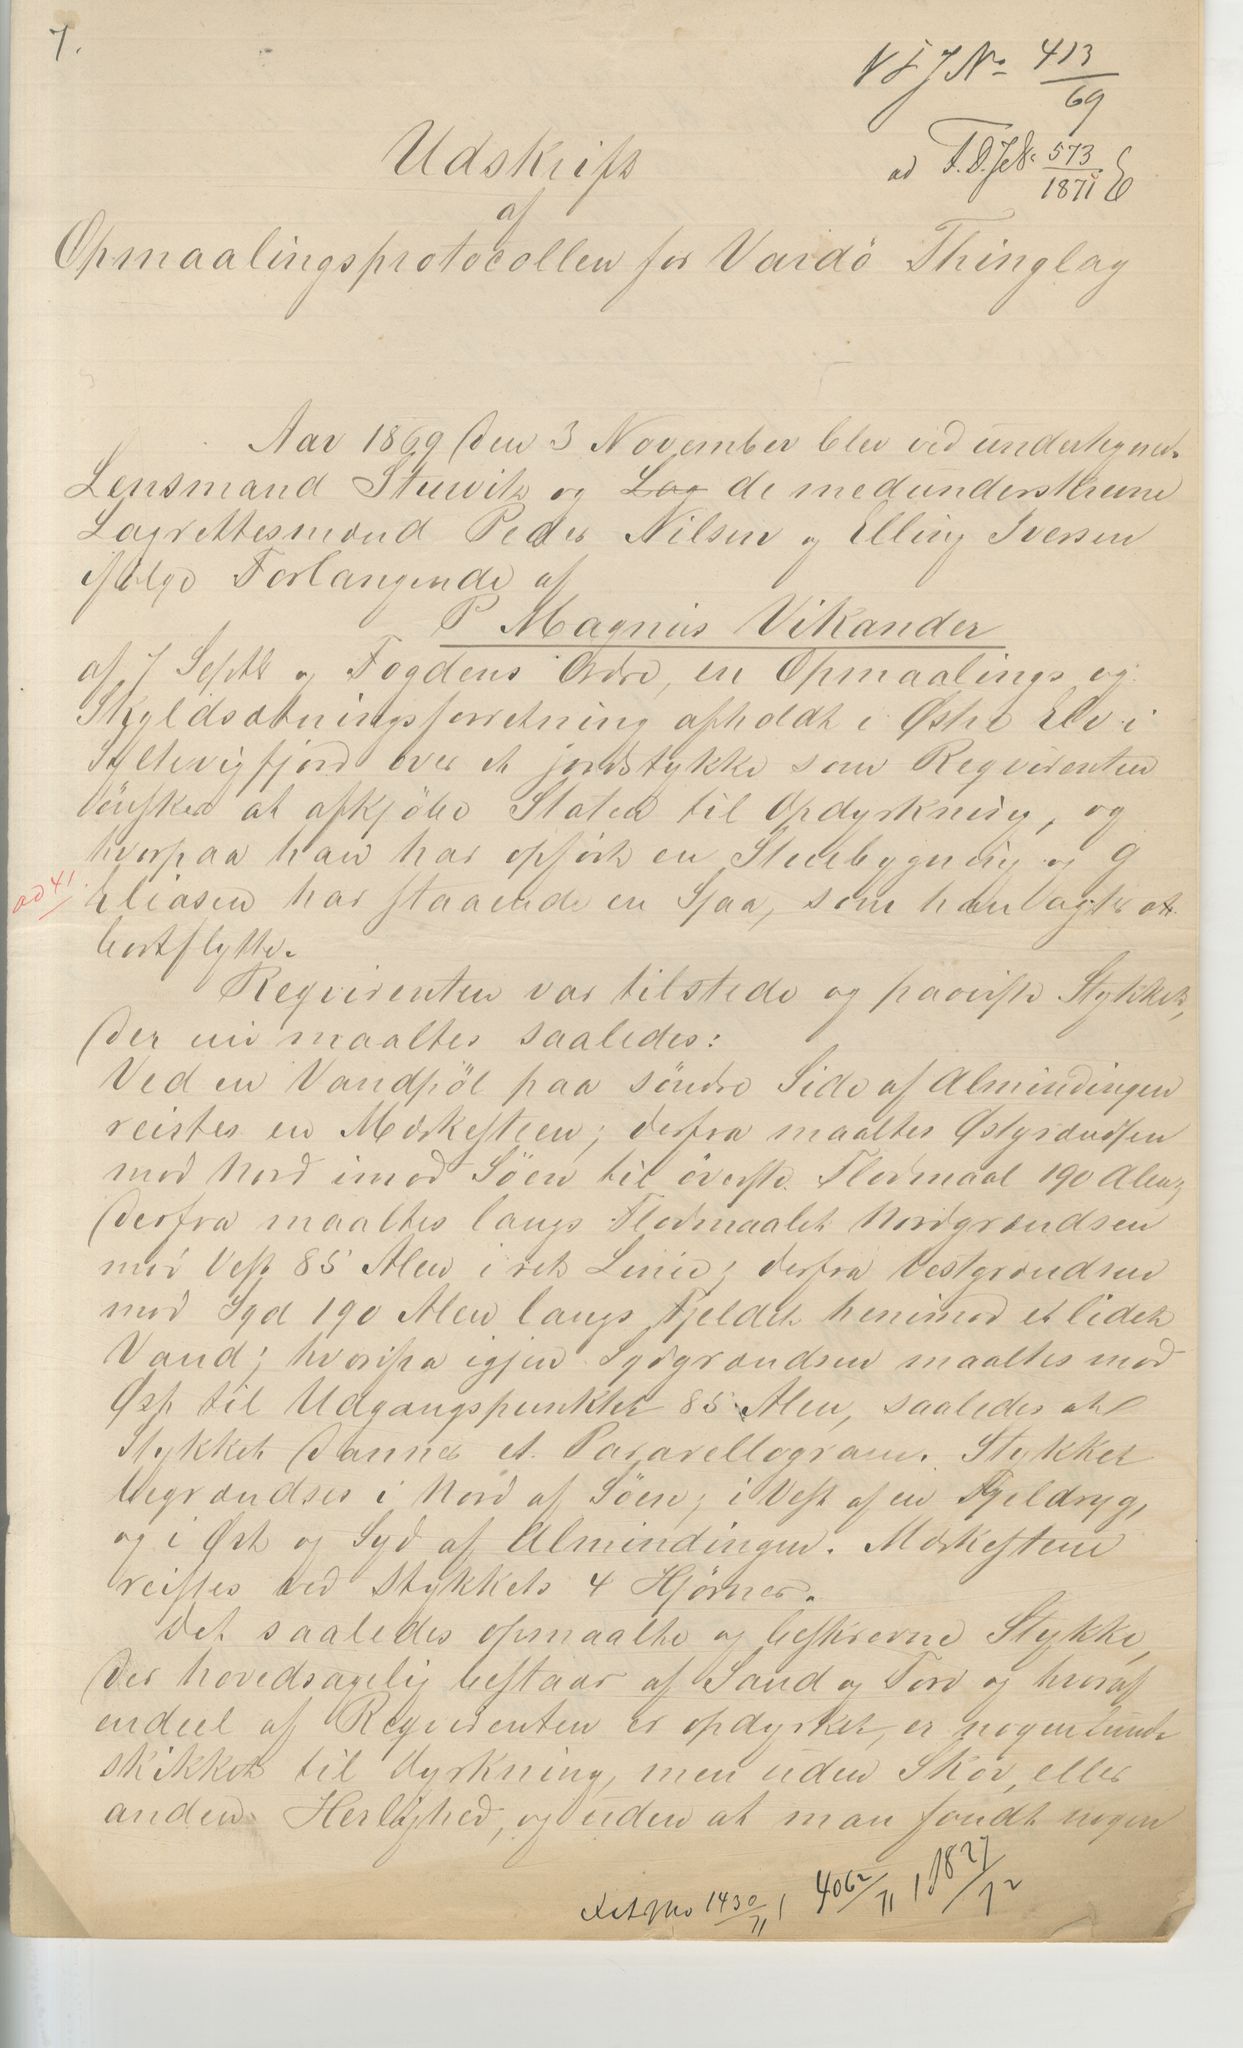 7.
N I J No 413/69
ad F.D.J.No 573/1871 E
Udskrift
af
Opmaalingsprotocollen for Vardö Thinglag
Aar 1869 den 3 November blev ved undertegnede
Lensmand Stuwitz og Lag de medunderskrevne
Lagrettesmænd Peder Nilsen og Elling Iversen
ifølge Forlangende af
P Magnus Vikander
af 7 Septb og Fogdens Ordre, en Opmaalings og
Skyldsætningsforretning afholdt i Østre Elv i
Syltevigfjord over et jordstykke som Reqvirenten
önsker at afkjöbe Staten til Opdyrkning, og
hvorpaa han har opført en Stuebygning og G
ad 41.
Eliasen har staaende en Sjaa, som han agter at
bortflytte.
Reqvirenten var tilstede og paaviste Stykket,
der nu maaltes saaledes:
Ved en Vandpöl paa söndre Side af Almindingen
reistes en Mærkesteen; derfra maaltes Østgrændsen
mod Nord imod Söen til överste Flodmaal 190 Alen;
derfra maaltes langs Flodmaalet Nordgrændsen
mod Vest 85 Alen i ret Linie; derfra Vestgrændsen
mod Syd 190 Alen langs Fjeldet henimod et lidet
Vand; hvorfra igjen Sydgrændsen maaltes mod
Øst til Udgangspunktet 85 Alen, saaledes at
Stykket danner et Pararellogram. Stykket
begrændses i Nord af Söen; i Vest af en Fjeldryg,
og i Øst og Syd af Almindingen. Mærkestene
reistes ved Stykkets 4 Hjörner.
Det saaledes opmaalte og beskrevne Stykke,
der hovedsagelig bestaar af Sand og Torv og hvoraf
endeel af Reqvirenten er opdyrket, er nogenlunde
skikket til dyrkning, men uden Skov, eller
anden Herlighed, og uden at man fandt nogen
1430/71, 4062/71, 1827/72